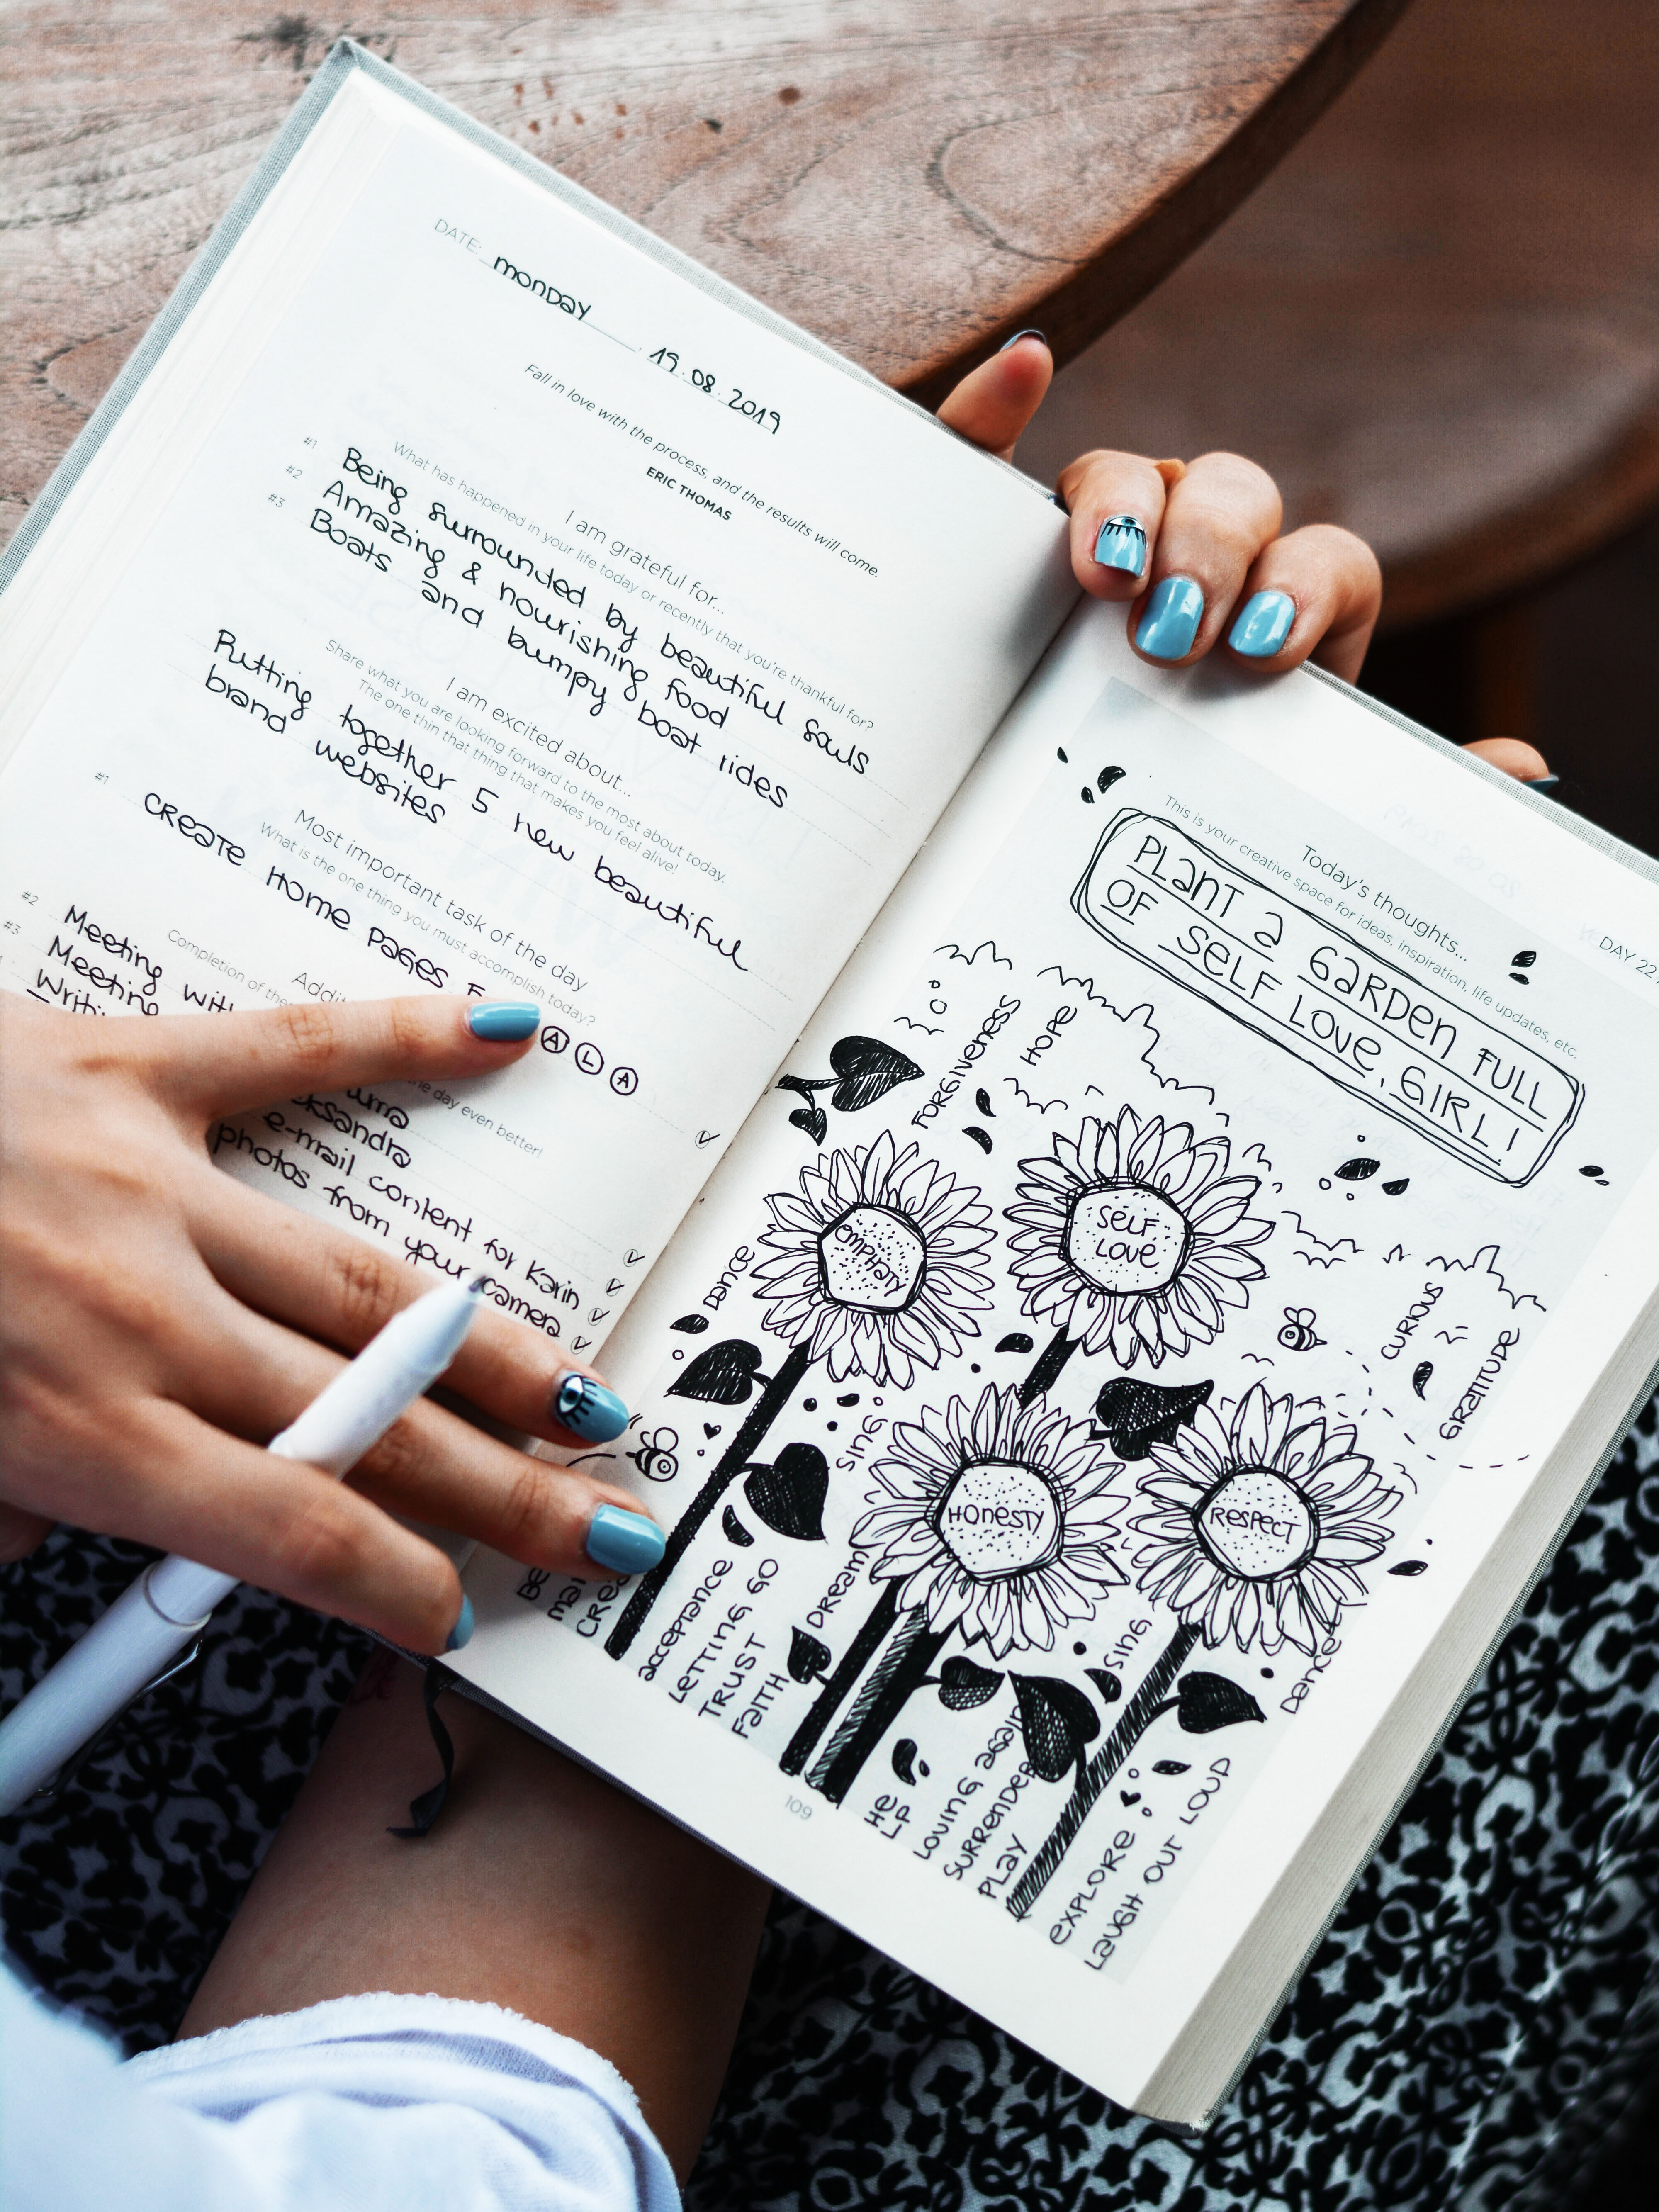 DATE: monday . 19.08.2019
Fall in love with the process, and the results will come.
ERIC THOMAS
I am grateful for...
What has happened in your life today or recently that you're thankful for?
#1 Being surrounded by beautiful souls
#2 Amazing & nourishing food
#3 Boats and bumpy boat rides
I am excited about...
Share what you are looking forward to the most about today.
The one thin that thing that makes you feel alive!
Putting together 5 new beautiful
brand websites
Most important task of the day
What is the one thing you must accomplish today?
#1 CREATE HOME PAGES A L A
Completion of
day even better!
#2 Meeting
#3 Meeting
e-mail content for Karin
photos from your camera
DAY 22
Today's thoughts...
This is your creative space for ideas, inspiration, life updates, etc.
PLANT a GARDEN FULL
OF SELF LOVE, GIRL!
FORGIVENESS
HOPE
EMPHATY
SELF
LOVE
DANCE
CURIOUS
GRATITUDE
SING
HONESTY
RESPECT
acceptance
LETTING GO
TRUST
FAITH
DREAM
SING
DANCE
HE
LP
LOVING again
SURRENDER
PLAY
EXPLORE
LAUGH OUT LOUD
109